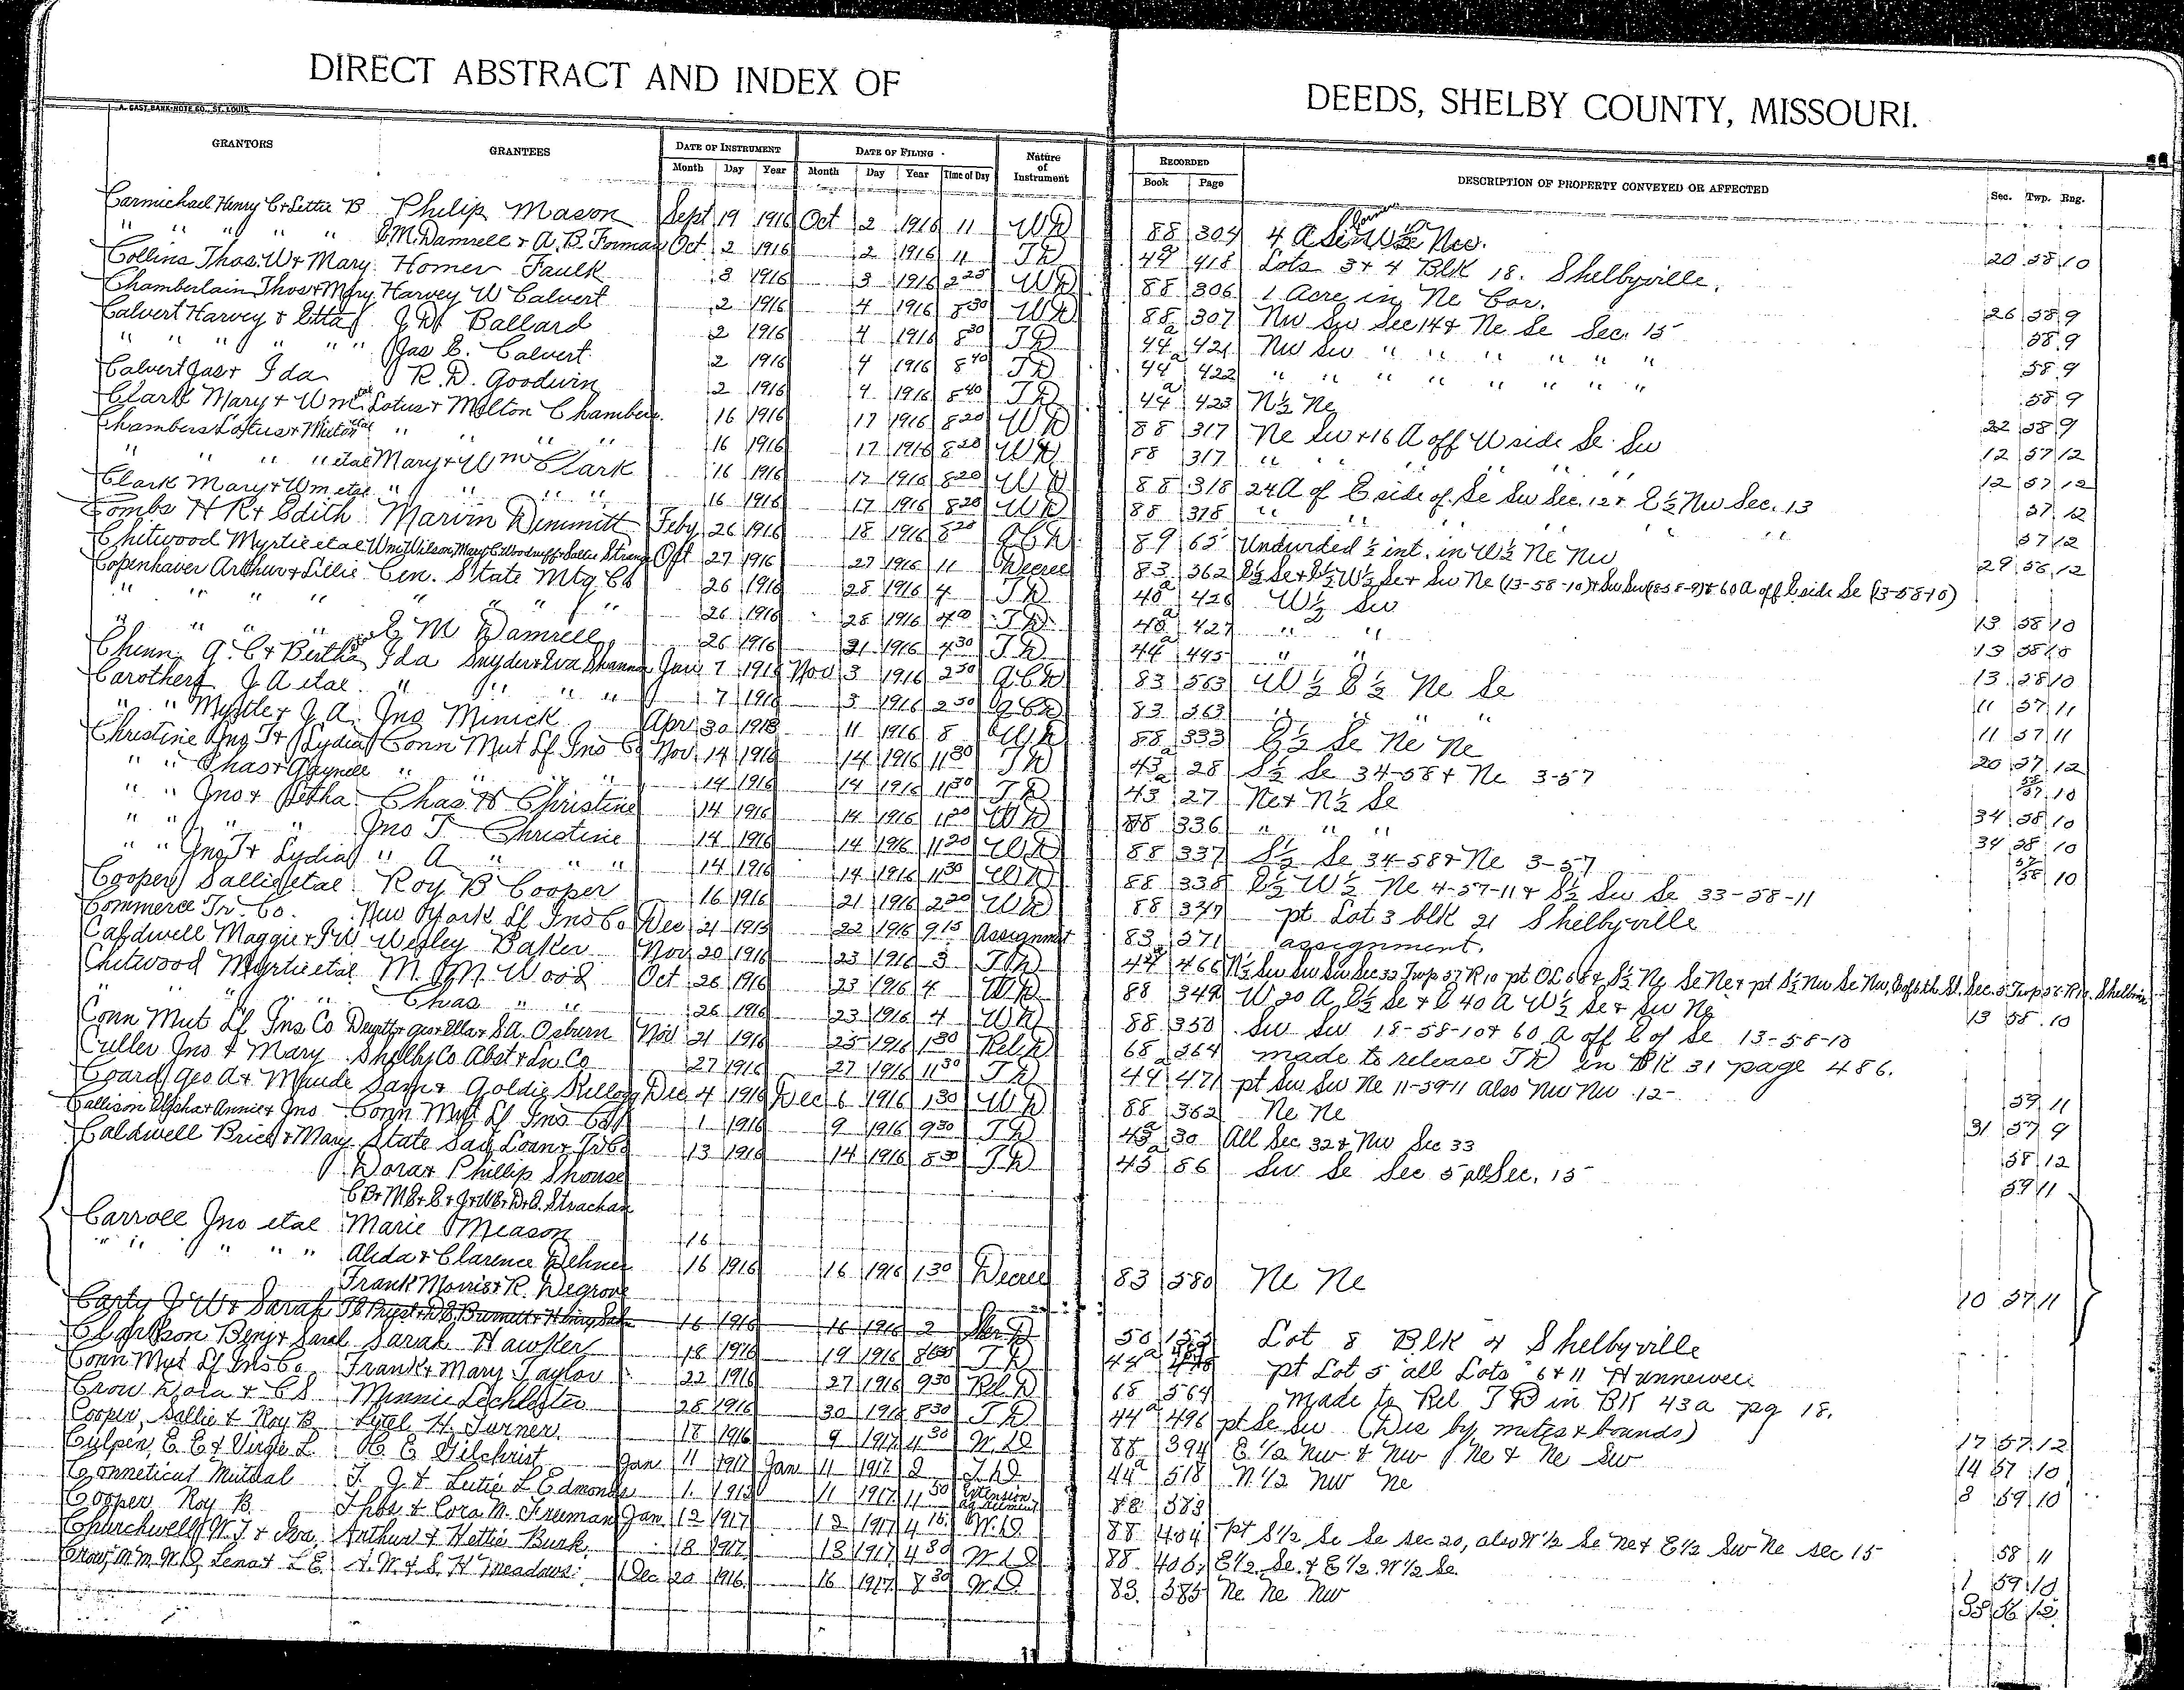 DIRECT ABSTRACT AND INDEX OF DEEDS, SHELBY COUNTY, MISSOURI.
A. GAST BANK NOTE CO., ST. LOUIS
GRANTORS GRANTEES DATE OF INSTRUMENT DATE OF FILING Nature of Instrument RECORDED DESCRIPTION OF PROPERTY CONVEYED OR AFFECTED Sec. Twp. Rng.
Month Day Year Month Day Year Time of Day Book Page
Carmichael Henry C & Lettie B Philip Mason Sept 19 1916 Oct 2 1916 11 WD 88 304 20 58 10
" " " " " J.M. Damrell & A.B. Forman Oct 2 1916 2 1916 11 TD 49a 418 Lots 3 & 4 Blk 18. Shelbyville.
Collins Thos. W & Mary Homer Faulk 3 1916 3 1916 2 25 WD 88 306 1 Acre in Ne Cor. 26 58 9
Chamberlain Thos & Mary Harvey W Calvert 2 1916 4 1916 8 30 WD 88 307 Nw Sw Sec 14 & Ne Se Sec. 15 58 9
Calvert Harvey & Etta J W Ballard 2 1916 4 1916 8 30 TD 44a 421 Nw Sw " " " " " " 58 9
" " " " " " Jas E. Calvert 2 1916 4 1916 8 40 TD 44a 422 " " " " " " " " 58 9
Calvert Jas & Ida R. D. Goodwin 2 1916 4 1916 8 40 TD 44a 423 N½ Ne 22 58 9
Clark Mary & Wm etal Lotus & Milton Chambers 16 1916 17 1916 8 20 WD 88 317 Ne Sw & 16 A off W side Se Sw 12 57 12
Chambers Lotus & Milton etal " " " " 16 1916 17 1916 8 20 WD 88 317 " " " " " 12 57 12
" " " " etal Mary & Wm Clark 16 1916 17 1916 8 20 WD 88 318 24 A of E side of Se Sw Sec. 12 & E½ Nw Sec. 13 57 12
Clark Mary & Wm etal " " " " 16 1916 17 1916 8 20 WD 88 318 " " " " 57 12
Combs H R & Edith Marvin Dimmitt Feby 26 1916 18 1916 8 20 QCD 89 65 Undivided ½ int. in W½ Ne Nw 29 56 12
Chitwood Myrtie etal Wm Wilson, Mary C Woodruff & Sallie Strange Oct 27 1916 27 1916 11 Decree 83 362
Copenhaver Arthur & Lillie Cen. State Mtg Co 26 1916 28 1916 4 TD 40a 426 W½ Sw 13 58 10
" " " " " " " " 26 1916 28 1916 4 TD 40a 427 " " 13 58 10
" " " " E M Damrell 26 1916 31 1916 4 30 TD 44a 445 " " 13 58 10
Chinn A. C & Bertha Ida Snyder & Eva Shannon Jan 7 1916 Nov 3 1916 2 30 QCD 83 363 W½ E½ Ne Se 11 57 11
Carothers J A etal " " " " 7 1916 3 1916 2 30 QCD 83 363 " " " " 11 57 11
" " Myrtle & J. A. Jno Minick Apr 30 1913 11 1916 8 WD 88 333 E½ Se Ne Ne 20 57 12
Christine Jno T & Lydia Conn Mut Lf Ins Co Nov 14 1916 14 1916 11 30 TD 43a 28 S½ Se 34-58 & Ne 3-57 58 57 10
" " Chas & Gaynell " " " " 14 1916 14 1916 11 30 TD 43a 27 Ne & N½ Se 34 58 10
" " Jno & Letha Chas. H Christine 14 1916 14 1916 11 20 WD 88 336 " " " 34 58 10
" " " " Jno T Christine 14 1916 14 1916 11 20 WD 88 337 S½ Se 34-58 & Ne 3-57 57 58 10
" " Jno T & Lydia " A " " " 14 1916 14 1916 11 30 WD 88 338 E½ W½ Ne 4-57-11 & S½ Sw Se 33-58-11
Cooper Sallie etal Roy B Cooper 16 1916 21 1916 2 20 WD 88 347 pt Lot 3 blk 21 Shelbyville
Commerce Tr. Co. New York Lf Ins Co Dec 21 1915 22 1916 9 15 Assignmt 83 371 assignment.
Caldwell Maggie & J W Wesley Baker Nov 20 1916 23 1916 3 TD 44a 466
Chitwood Myrtie etal M M Wood Oct 26 1916 23 1916 4 WD 88 349 W 20 A E½ Se & E 40 A W½ Se & Sw Ne 13 58 10
" " " Chas " " 26 1916 23 1916 4 WD 88 350 Sw Sw 18-58-10 & 60 A off E of Se 13-58-10
Conn Mut Lf Ins Co Geo & Ella & S.A. Osburn Nov 21 1916 25 1916 1 30 Rel D 68 364 made to release TD in BK 31 page 486.
Culler Jno & Mary Shelby Co Abst & Ln Co 27 1916 27 1916 11 30 TD 44a 471 pt Sw Sw Ne 11-59-11 also Nw Nw 12- 59 11
Coard Geo A & Maude Sam & Goldie Kellogg Dec 4 1916 Dec 6 1916 1 30 WD 88 362 Ne Ne 31 57 9
Callison Alpha & Annie & Jno Conn Mut Lf Ins Co 1 1916 9 1916 9 30 TD 43a 30 All Sec 32 & Nw Sec 33 58 12
Caldwell Brice & Mary State Sav Loan & Tr Co 13 1916 14 1916 8 30 TD 45a 86 Sw Se Sec 5 all Sec. 15 59 11
Dora & Phillip Shouse
Strachan
Carroll Jno etal Marie Meason 16
" " " " " Alida & Clarence Dehner 16 1916 16 1916 1 30 Decree 83 380 Ne Ne 10 57 11
Frank Morris & R. Degrove
Carty J W & Sarah 16 1916 16 1916 2 50 155 Lot 8 Blk 4 Shelbyville
Clarkson Benj & Saral Sarah Hawker 18 1916 19 1916 8 TD 44a pt Lot 5 all Lots 6 & 11 Hunnewell
Conn Mut Lf Ins Co Frank & Mary Taylor 22 1916 27 1916 9 30 Rel D 68 564 Made to Rel TD in BK 43a pg 18.
Crow Dola & C S Minnie Lechliter 28 1916 30 1916 8 30 TD 44a 496 pt Se Sw (Des by metes & bounds) 17 57 12
Cooper, Sallie & Roy B Lytel H. Turner 18 1916 9 1917 4 30 W.D 88 394 E ½ Nw & Nw Ne & Ne Sw 14 57 10
Culpen, E. E & Virgie L. H E Gilchrist Jan 11 1917 Jan 11 1917 2 T.D 44a 518 N ½ Nw Ne 8 59 10
Conneticut Mutual T. J & Lutie L Edmonds 1 1913 11 1917 11 30 Extension agreement 88 383
Cooper Roy B. Thos & Cora M. Freeman Jan 12 1917 12 1917 4 15 W.D 88 404 pt S½ Se Se Sec 20, also N½ Se Ne & E½ Sw Ne Sec 15 58 11
Churchwell W. T & Iva Arthur & Hettie Burk 18 1917 13 1917 4 30 W.D 88 406 E½ Se & E½ W½ Se 1 59 10
Crow, M.M. W.D, Lena & L E A. W. & S. H Meadows Dec 20 1916 16 1917 8 30 W.D 83 385 Ne Ne Nw 35 56 12